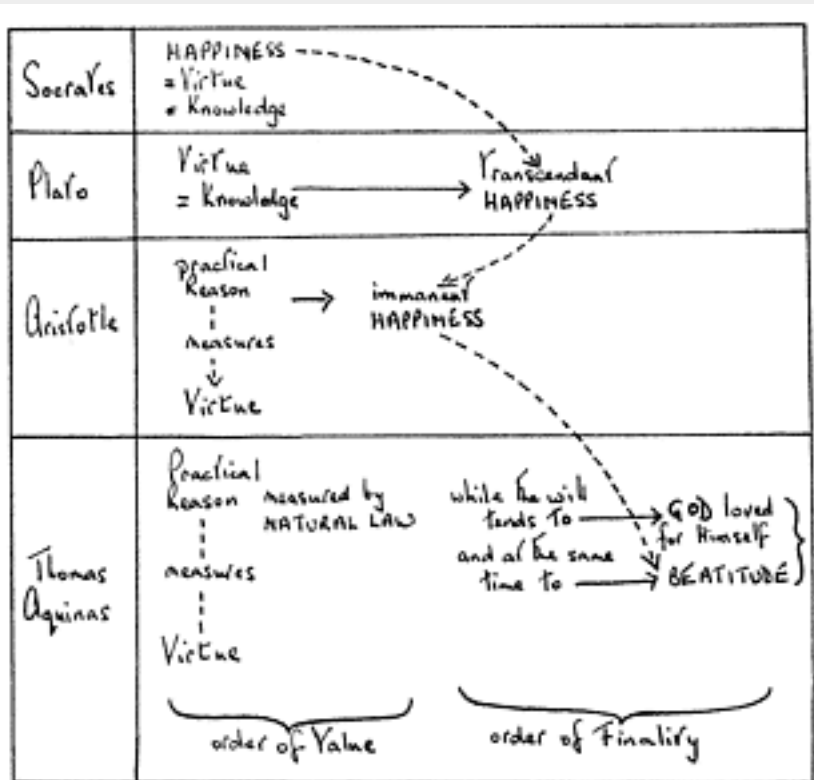 Socrates
HAPPINESS
= Virtue
= Knowledge
Plato
Virtue
= Knowledge
Transcendant
HAPPINESS
Aristotle
practical
Reason
measures
Virtue
immanent
HAPPINESS
Thomas
Aquinas
Practical
Reason measured by
NATURAL LAW
measures
Virtue
while the will
tends to
GOD loved
for Himself
and at the same
time to
BEATITUDE
order of Value
order of Finality